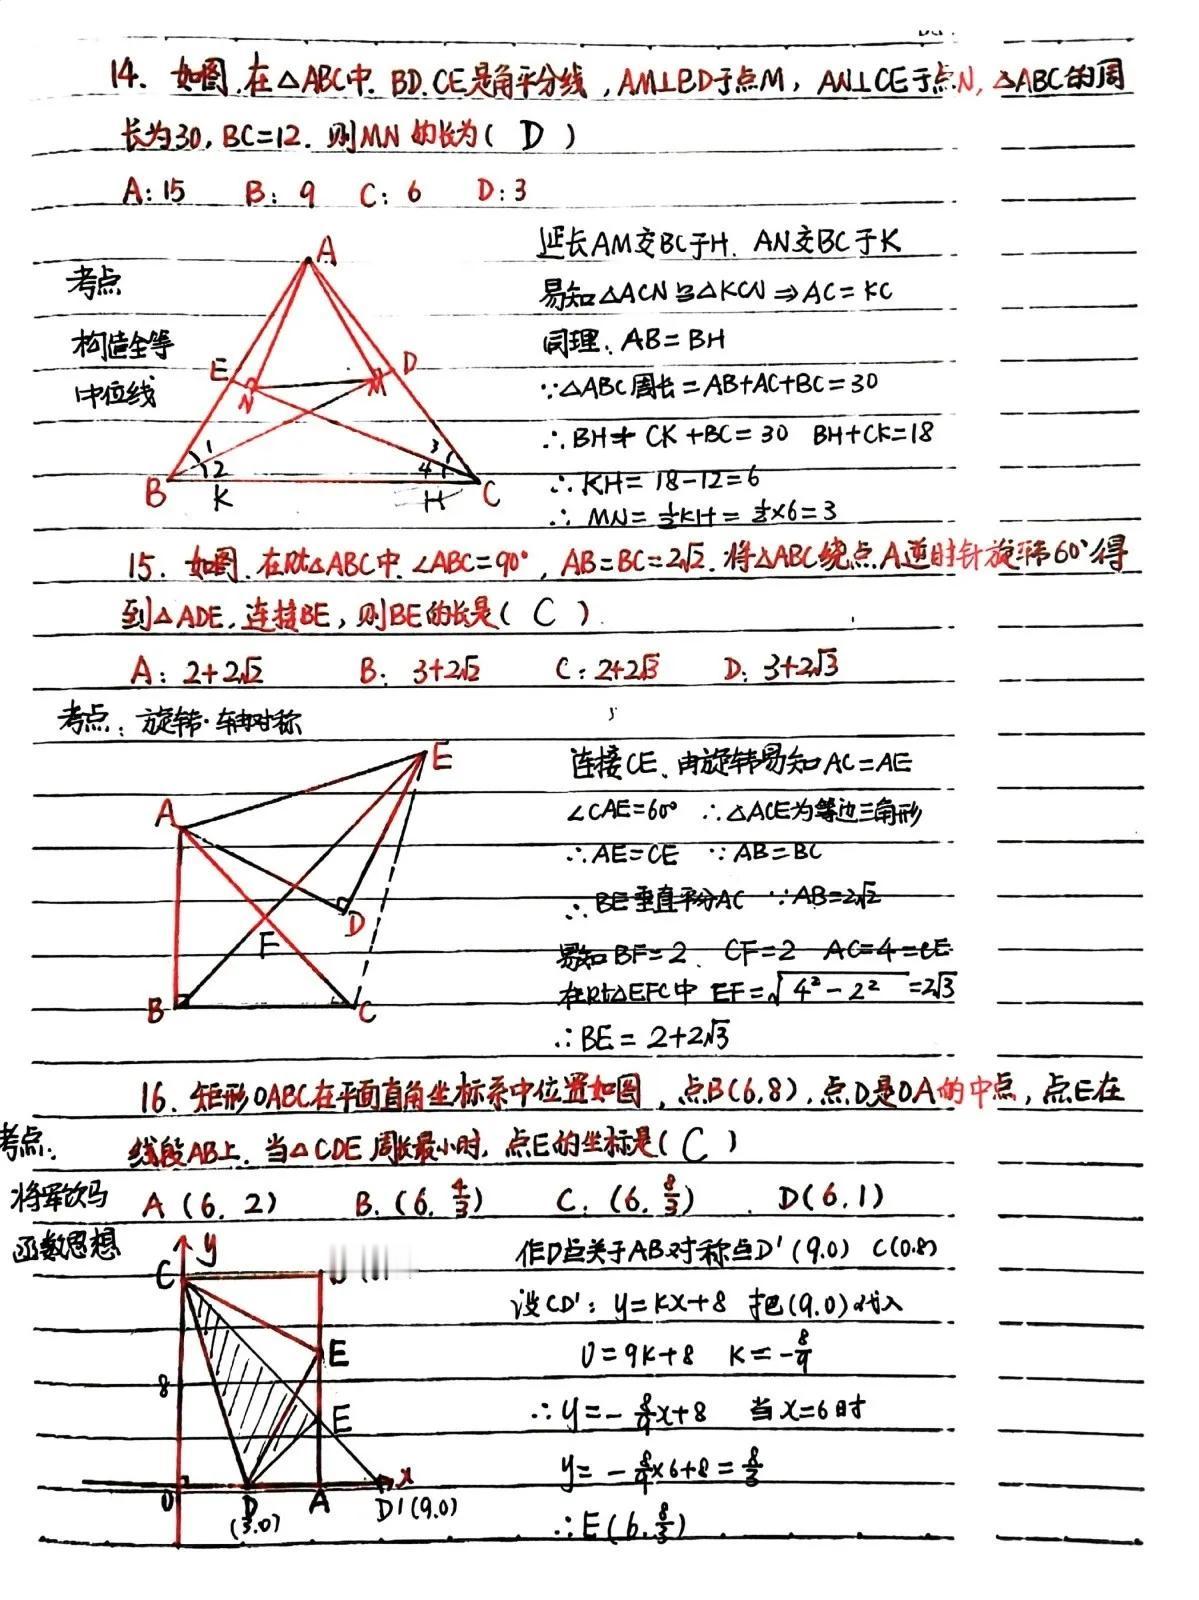 14. 如图.在△ABC中.BD.CE是角平分线,AM⊥BD于点M,AN⊥CE于点N,△ABC的周
长为30,BC=12.则MN的长为( D )
A:15 B:9 C:6 D:3
考点
构造全等
中位线
A
E
D
N
M
1
2
3
4
B
K
H
C
延长AM交BC于H.AN交BC于K
易知△ACN≌△KCN⇒AC=KC
同理.AB=BH
∵△ABC周长=AB+AC+BC=30
∴BH+CK+BC=30 BH+CK=18
∴KH=18-12=6
∴MN=½KH=½×6=3
15. 如图.在Rt△ABC中.∠ABC=90°,AB=BC=2√2.将△ABC绕点A逆时针旋转60°得
到△ADE.连接BE,则BE的长是( C )
A:2+2√2 B:3+2√2 C:2+2√3 D:3+2√3
考点:旋转·轴对称
E
A
D
F
B
C
连接CE.由旋转易知AC=AE
∠CAE=60° ∴△ACE为等边三角形
∴AE=CE ∵AB=BC
∴BE垂直平分AC ∵AB=2√2
易知BF=2. CF=2 AC=4=CE
在Rt△EFC中 EF=√4²-2²=2√3
∴BE=2+2√3
16. 矩形OABC在平面直角坐标系中位置如图,点B(6,8),点D是OA的中点,点E在
线段AB上.当△CDE周长最小时,点E的坐标是( C )
A (6.2) B.(6.4/3) C.(6.8/3) D(6.1)
考点.
将军饮马
函数思想
y
C
E
8
E
x
O
D
A
D'(9.0)
(3.0)
作D点关于AB对称点D'(9.0) C(0.8)
设CD':y=kx+8 把(9.0)代入
0=9k+8 k=-8/9
∴y=-8/9x+8 当x=6时
y=-8/9×6+8=8/3
∴E(6.8/3)